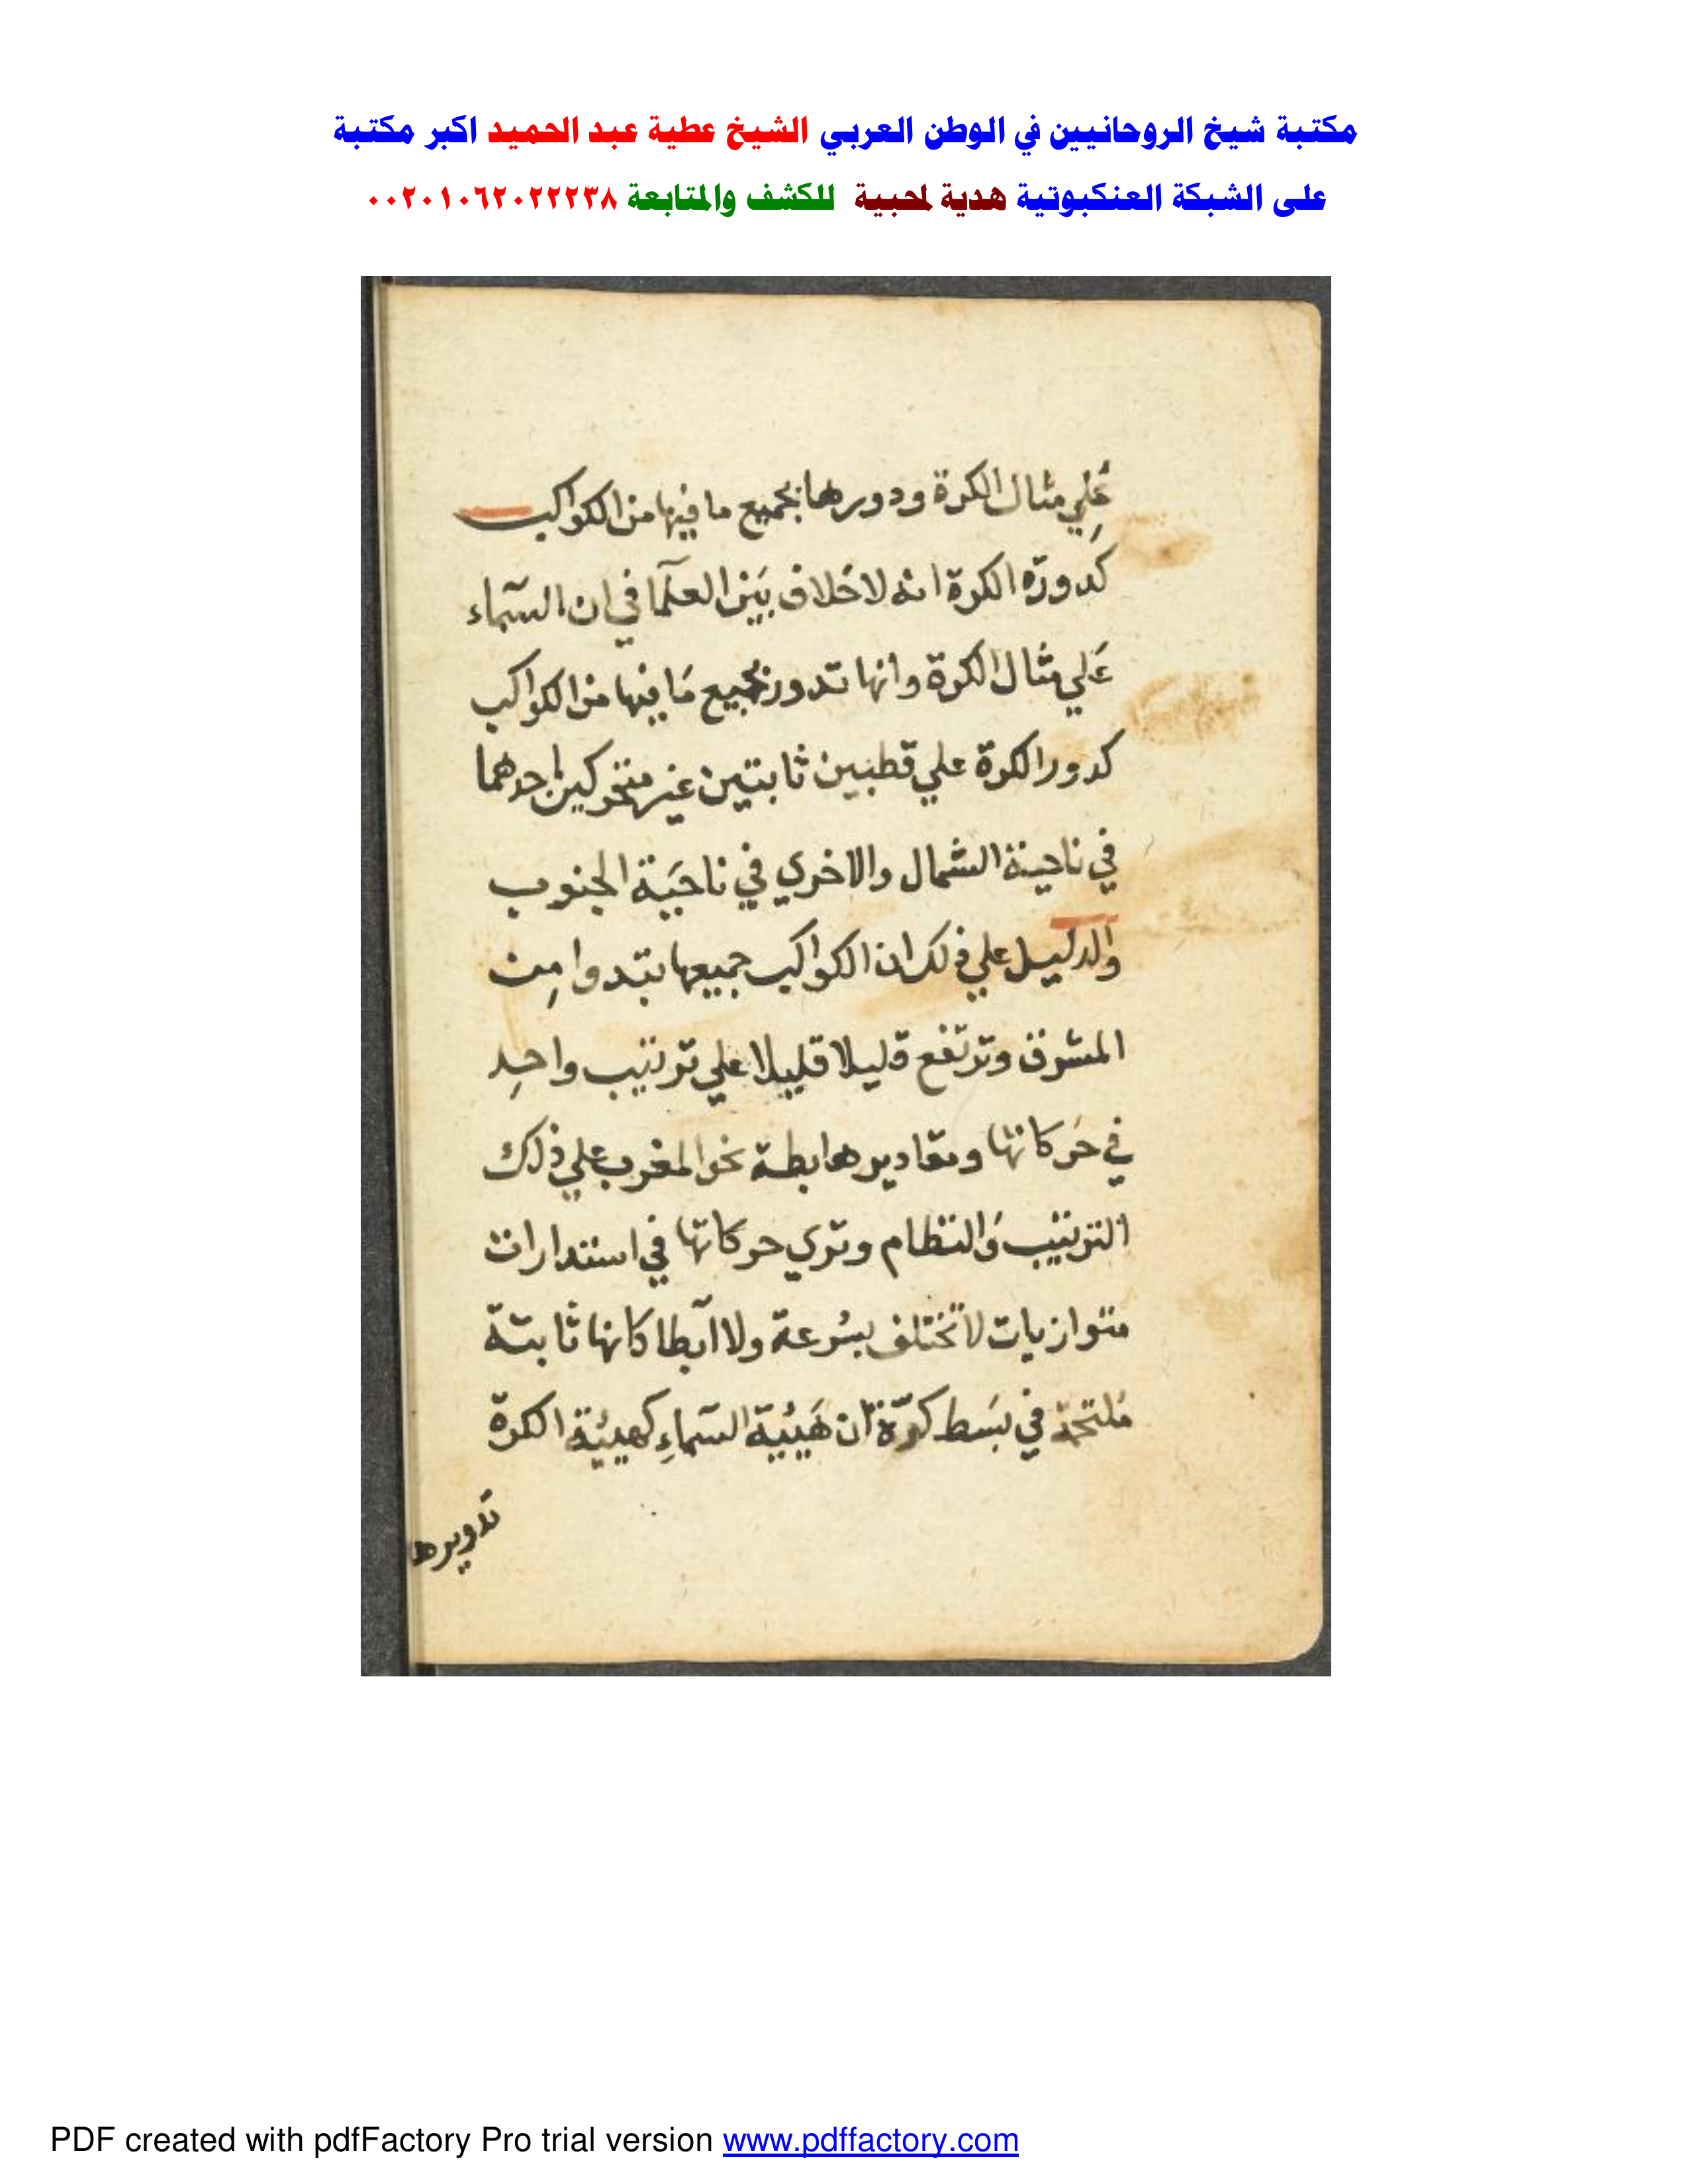 مكتبة شيخ الروحانيين في الوطن العربي الشيخ عطية عبد الحميد اكبر مكتبة
على الشبكة العنكبوتية هدية لمحبية للكشف والمتابعة ٠٠٢٠١٠٦٢٠٢٢٢٣٨
عَلي مثال الكرة ودورها بجميع ما فيها من الكواكب
كدورة الكرة انه لا خلاف بَين العلمآ في ان السمآء
عَلي مثال الكرة وانها تدور بجميع مَا فيها من الكواكب
كدور الكرة علي قطبين ثابتين غير متحركين احدهما
في ناحية الشمال والاخري في ناحَية الجنوب
والدليل علي ذلك ان الكواكب جميعها تبتدوا مِن
المشرق وترتفع قليلا قليلا علي ترتيب واحدِ
في حَركاتها ومقاديرها هابطة نحو المغرب علي ذلك
الترتيب وَالنظام وتري حركاتها في استدارات
متوازيات لا تختلف بسُرعة ولا ابطا كانها ثابتة
ملتحمة في بسَط كرّة ان هَيئية السمآءِ كهيئية الكرة
تدويرها
PDF created with pdfFactory Pro trial version www.pdffactory.com